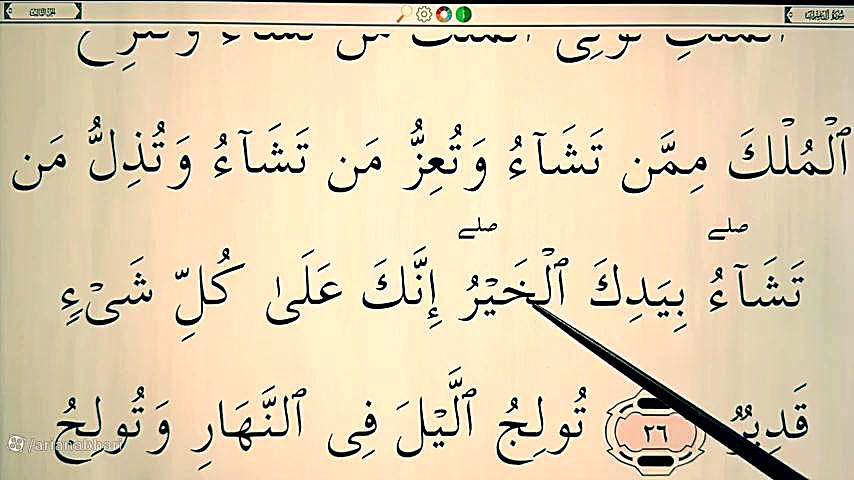 الجزء الثالث
ٱلْمُلْكَ مِمَّن تَشَآءُ وَتُعِزُّ مَن تَشَآءُ وَتُذِلُّ مَن
تَشَآءُ ۖ بِيَدِكَ ٱلْخَيْرُ ۖ إِنَّكَ عَلَىٰ كُلِّ شَىْءٍ
قَدِيرٌ ٢٦ تُولِجُ ٱلَّيْلَ فِى ٱلنَّهَارِ وَتُولِجُ
/arianabhari